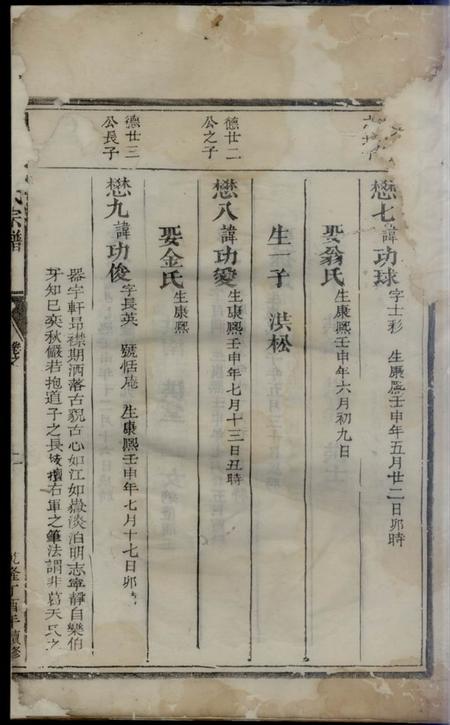 懋七諱功球字士彩 生康熙壬申年五月廿二日卯時
娶翁氏生康熙壬申年六月初九日
生一子 洪松
德廿二公之子
懋八諱功變生康熙壬申年七月十三日丑時
娶金氏生康熙
德廿三公長子
懋九諱功俊字長英 號恬庵 生康熙壬申年七月十七日卯時
器宇軒昂襟期洒落古貌古心如江如嶽淡泊明志寧靜自樂伯
牙知已奕秋儼若抱道子之長技擅右軍之筆法謂非葛天氏之
氏宗譜
乾隆丁酉年續修